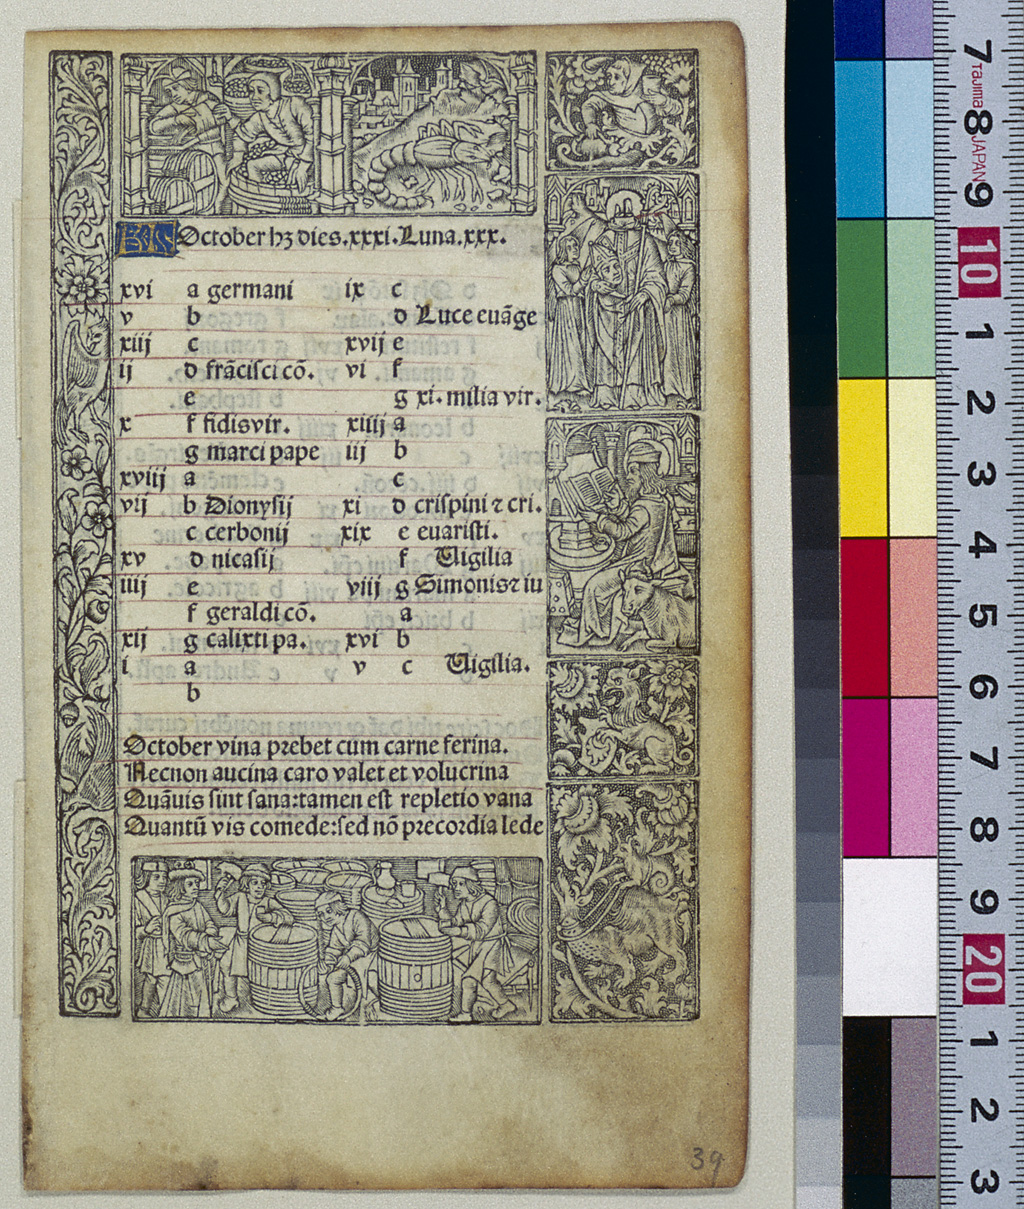 October hꝫ dies.xxxi.Luna.xxx.
xvi a germani
v b
xiij c
ij d frãcisci cõ.
e
x f fidisvir.
g marci pape
xviij a
vij b Dionysij
c cerbonij
xv d nicasij
iiij e
f geraldi cõ.
xij g calixti pa.
i a
b
ix c
d Luce euãge
xvij e
vi f
g xi. milia vir.
xiiij a
iij b
c
xi d crispini ⁊ cri.
xix e euaristi.
f Vigilia
viij g Simonis⁊ iu
a
xvi b
v c Vigilia.
October vina prebet cum carne ferina.
Necnon aucina caro valet et volucrina
Quãuis sint sana:tamen est repletio vana
Quantũ vis comede:sed nõ precordia lede
39
7
8
9
10
1
2
3
4
5
6
7
8
9
20
1
2
3
Tajima JAPAN